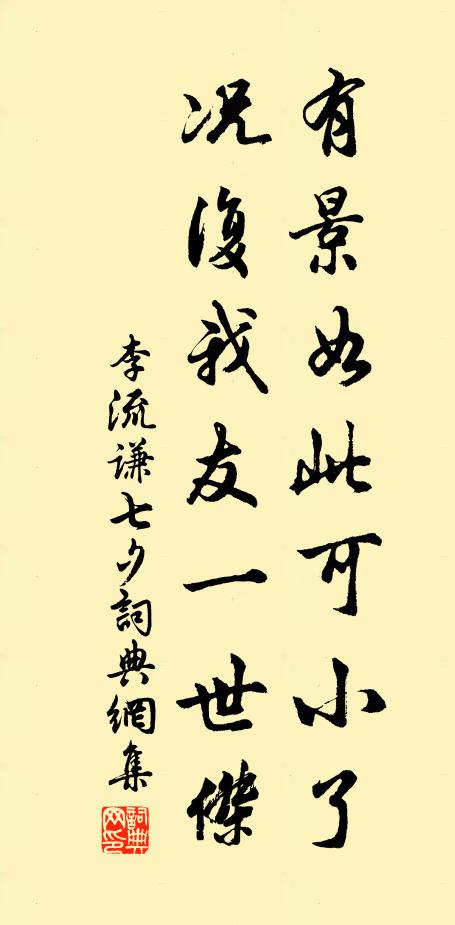 有景如此可小了
况復我友一世傑
李流谦七夕詞典網集
詞典网印